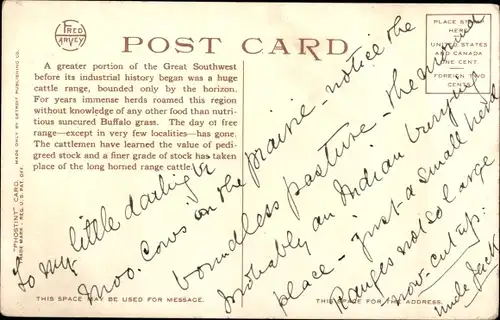 FRED HARVEY
POST CARD
PLACE STAMP
HERE
UNITED STATES
AND CANADA
ONE CENT.
FOREIGN TWO
CENTS
A greater portion of the Great Southwest
before its industrial history began was a huge
cattle range, bounded only by the horizon.
For years immense herds roamed this region
without knowledge of any other food than nutri-
tious suncured Buffalo grass. The day of free
range—except in very few localities—has gone.
The cattlemen have learned the value of pedi-
greed stock and a finer grade of stock has taken
place of the long horned range cattle.
"PHOSTINT" CARD.
TRADE MARK - REG. U.S. PAT. OFF.
MADE ONLY BY DETROIT PUBLISHING CO.
To my little darling
Moo-cows on the prairie - notice the
boundless pasture - the
Probably an Indian burying
place - just a small herd
Ranges not so large
now - cut up.
Uncle Jack
THIS SPACE MAY BE USED FOR MESSAGE.
THIS SPACE FOR THE ADDRESS.